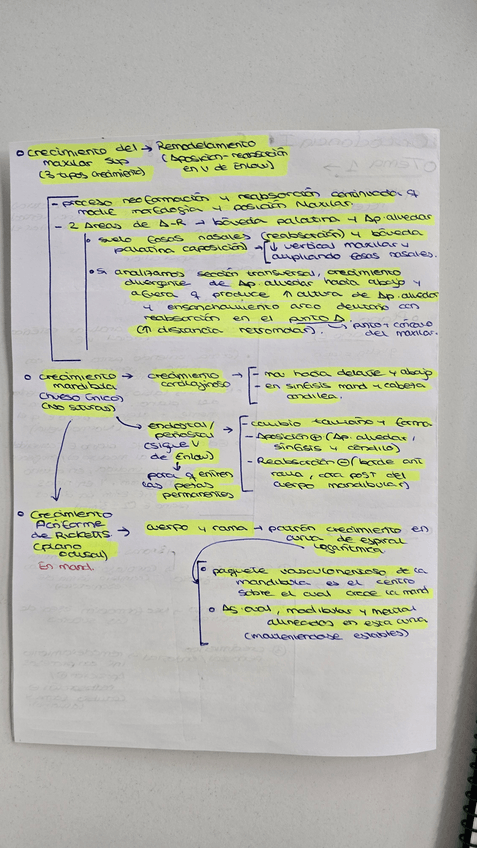 o crecimiento del → Remodelamiento
maxilar sup (Aposición-reabsorción
(3 tipos crecimiento) en V de Enlow)
- proceso neoformación y reabsorción continuada q
modif morfología y posición Maxilar.
- 2 Áreas de A-R → bóveda palatina y Ap. alveolar
• suelo fosas nasales (reabsorción) y bóveda
palatina (aposición) → ↓ vertical maxilar y
ampliando fosas nasales.
• si analizamos sección transversal, crecimiento
divergente de Ap. alveolar hacia abajo y
afuera q produce ↑ altura de Ap. alveolar
y ensanchamiento arco dentario con
reabsorción en el punto A.
(↑ distancia retromolar). → punto + cóncavo
del maxilar.
o crecimiento → crecimiento → - mas hacia delante y abajo
mandíbula cartilaginoso - en sínfisis mand y cabeza
(hueso único) condilea.
(No suturas)
endostal/ → - cambio tamaño y forma
periostal - Aposición ⊕ (Ap. alveolar,
(sigue V sínfisis y cóndilo)
de Enlow) - Reabsorción ⊖ (borde ant
↓ rama, cara post del
para q entren cuerpo mandibular)
las piezas
permanentes
o Crecimiento
Arciforme → cuerpo y rama → patrón crecimiento en
de Ricketts curva de espiral
(plano logarítmica
oclusal)
En mand.
o paquete vasculonervioso de la
mandíbula es el centro
sobre el cual crece la mand
o Ag oval, mandibular y mental
alineados en esta curva
(manteniéndose estables)